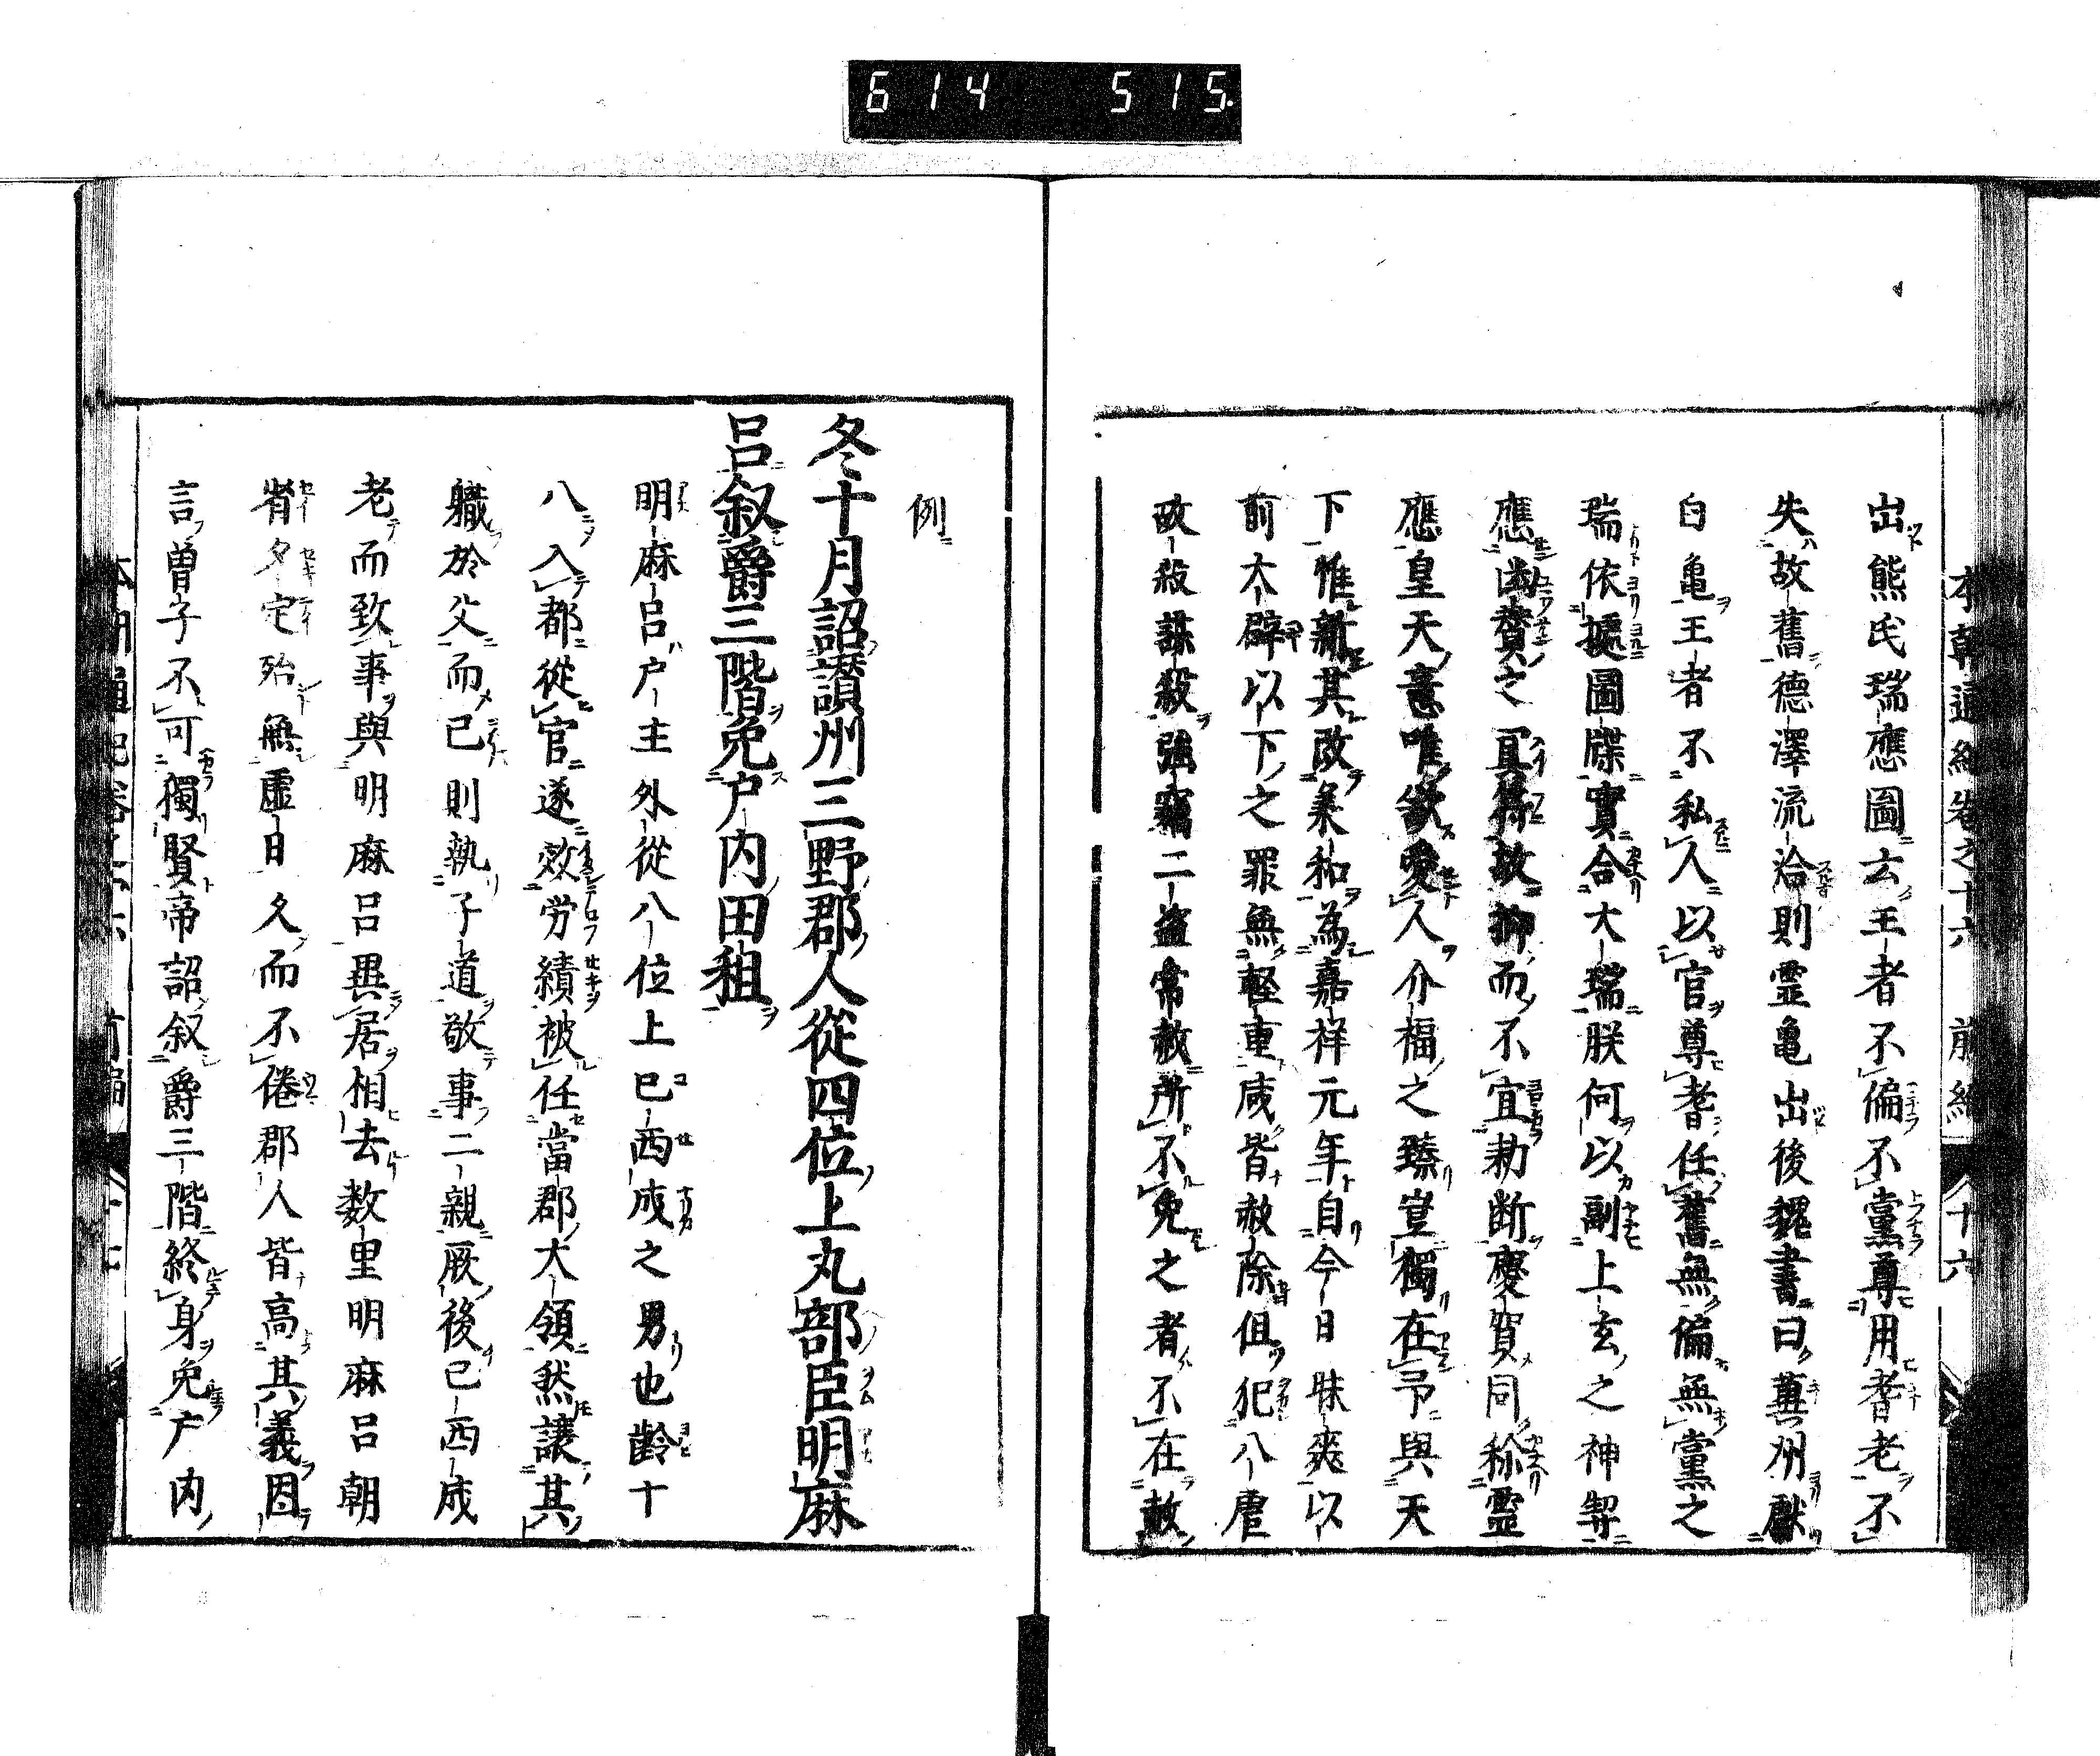 614 515.
本朝通紀卷之十六 前編 十六
出熊氏瑞應圖云王者不偏不黨尊用耆老不
失故舊德澤流洽則霊亀出後魏書曰冀州獻
白亀王者不私人以官尊耆任舊無偏無黨之
瑞依據圖牒實合大瑞朕何以副上玄之神契
應幽賛之冥符故抑而不宜勅断慶賀同称霊
應皇天意唯欲愛人介福之臻豈獨在予與天
下惟新其改柔和為嘉祥元年自今日昧爽以
前大辟以下之罪無軽重咸皆赦除但犯八虐
故殺謀殺強竊二盗常赦所不免之者不在赦
例
冬十月詔讃州三野郡人從四位上丸部臣明麻
呂叙爵三階免户内田租
明麻呂户主外從八位上巳西成之男也齡十
八入都從官遂效労績被任當郡大領然讓其
職於父而已則執子道敬事二親厥後已西成
老而致事與明麻呂異居相去数里明麻呂朝
省夕定殆無虚日久而不倦郡人皆高其義因
言曽子不可獨賢帝詔叙爵三階終身免户内